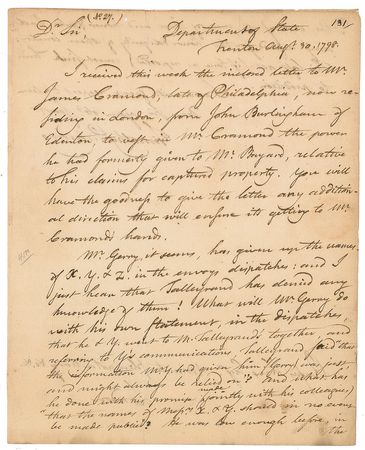 (No. 27.)
131/
Dr Sir,
Department of State,
Trenton Augt. 30. 1798.
I received this week the inclosed letter to Mr.
James Cramond, late of Philadelphia, now re-
siding in London, from John Burlingham of
Edenton, to vest in Mr. Cramond the power
he had formerly given to Mr. Bayard, relative
to his claims for captured property. You will
have the goodness to give the letter any addition-
al direction that will ensure its getting to Mr.
Cramond's hands.
Mr. Gerry, it seems, has given up the names
of X. Y. & Z. in the envoys dispatches: and I
just hear that Talleyrand has denied any
knowledge of them! What will Mr. Gerry do
with his own statement, in the dispatches,
that he & Y. went to M. Talleyrand's together, and
referring to Y's communications, Talleyrand said "that
the information Mr. Y. had given him (Gerry) was just,
and might always be relied on"? And what has
he done with his promise made (jointly with his colleagues)
"that the names of Messrs. X. & Y. should in no event
be made public"? He was low enough before, in
the